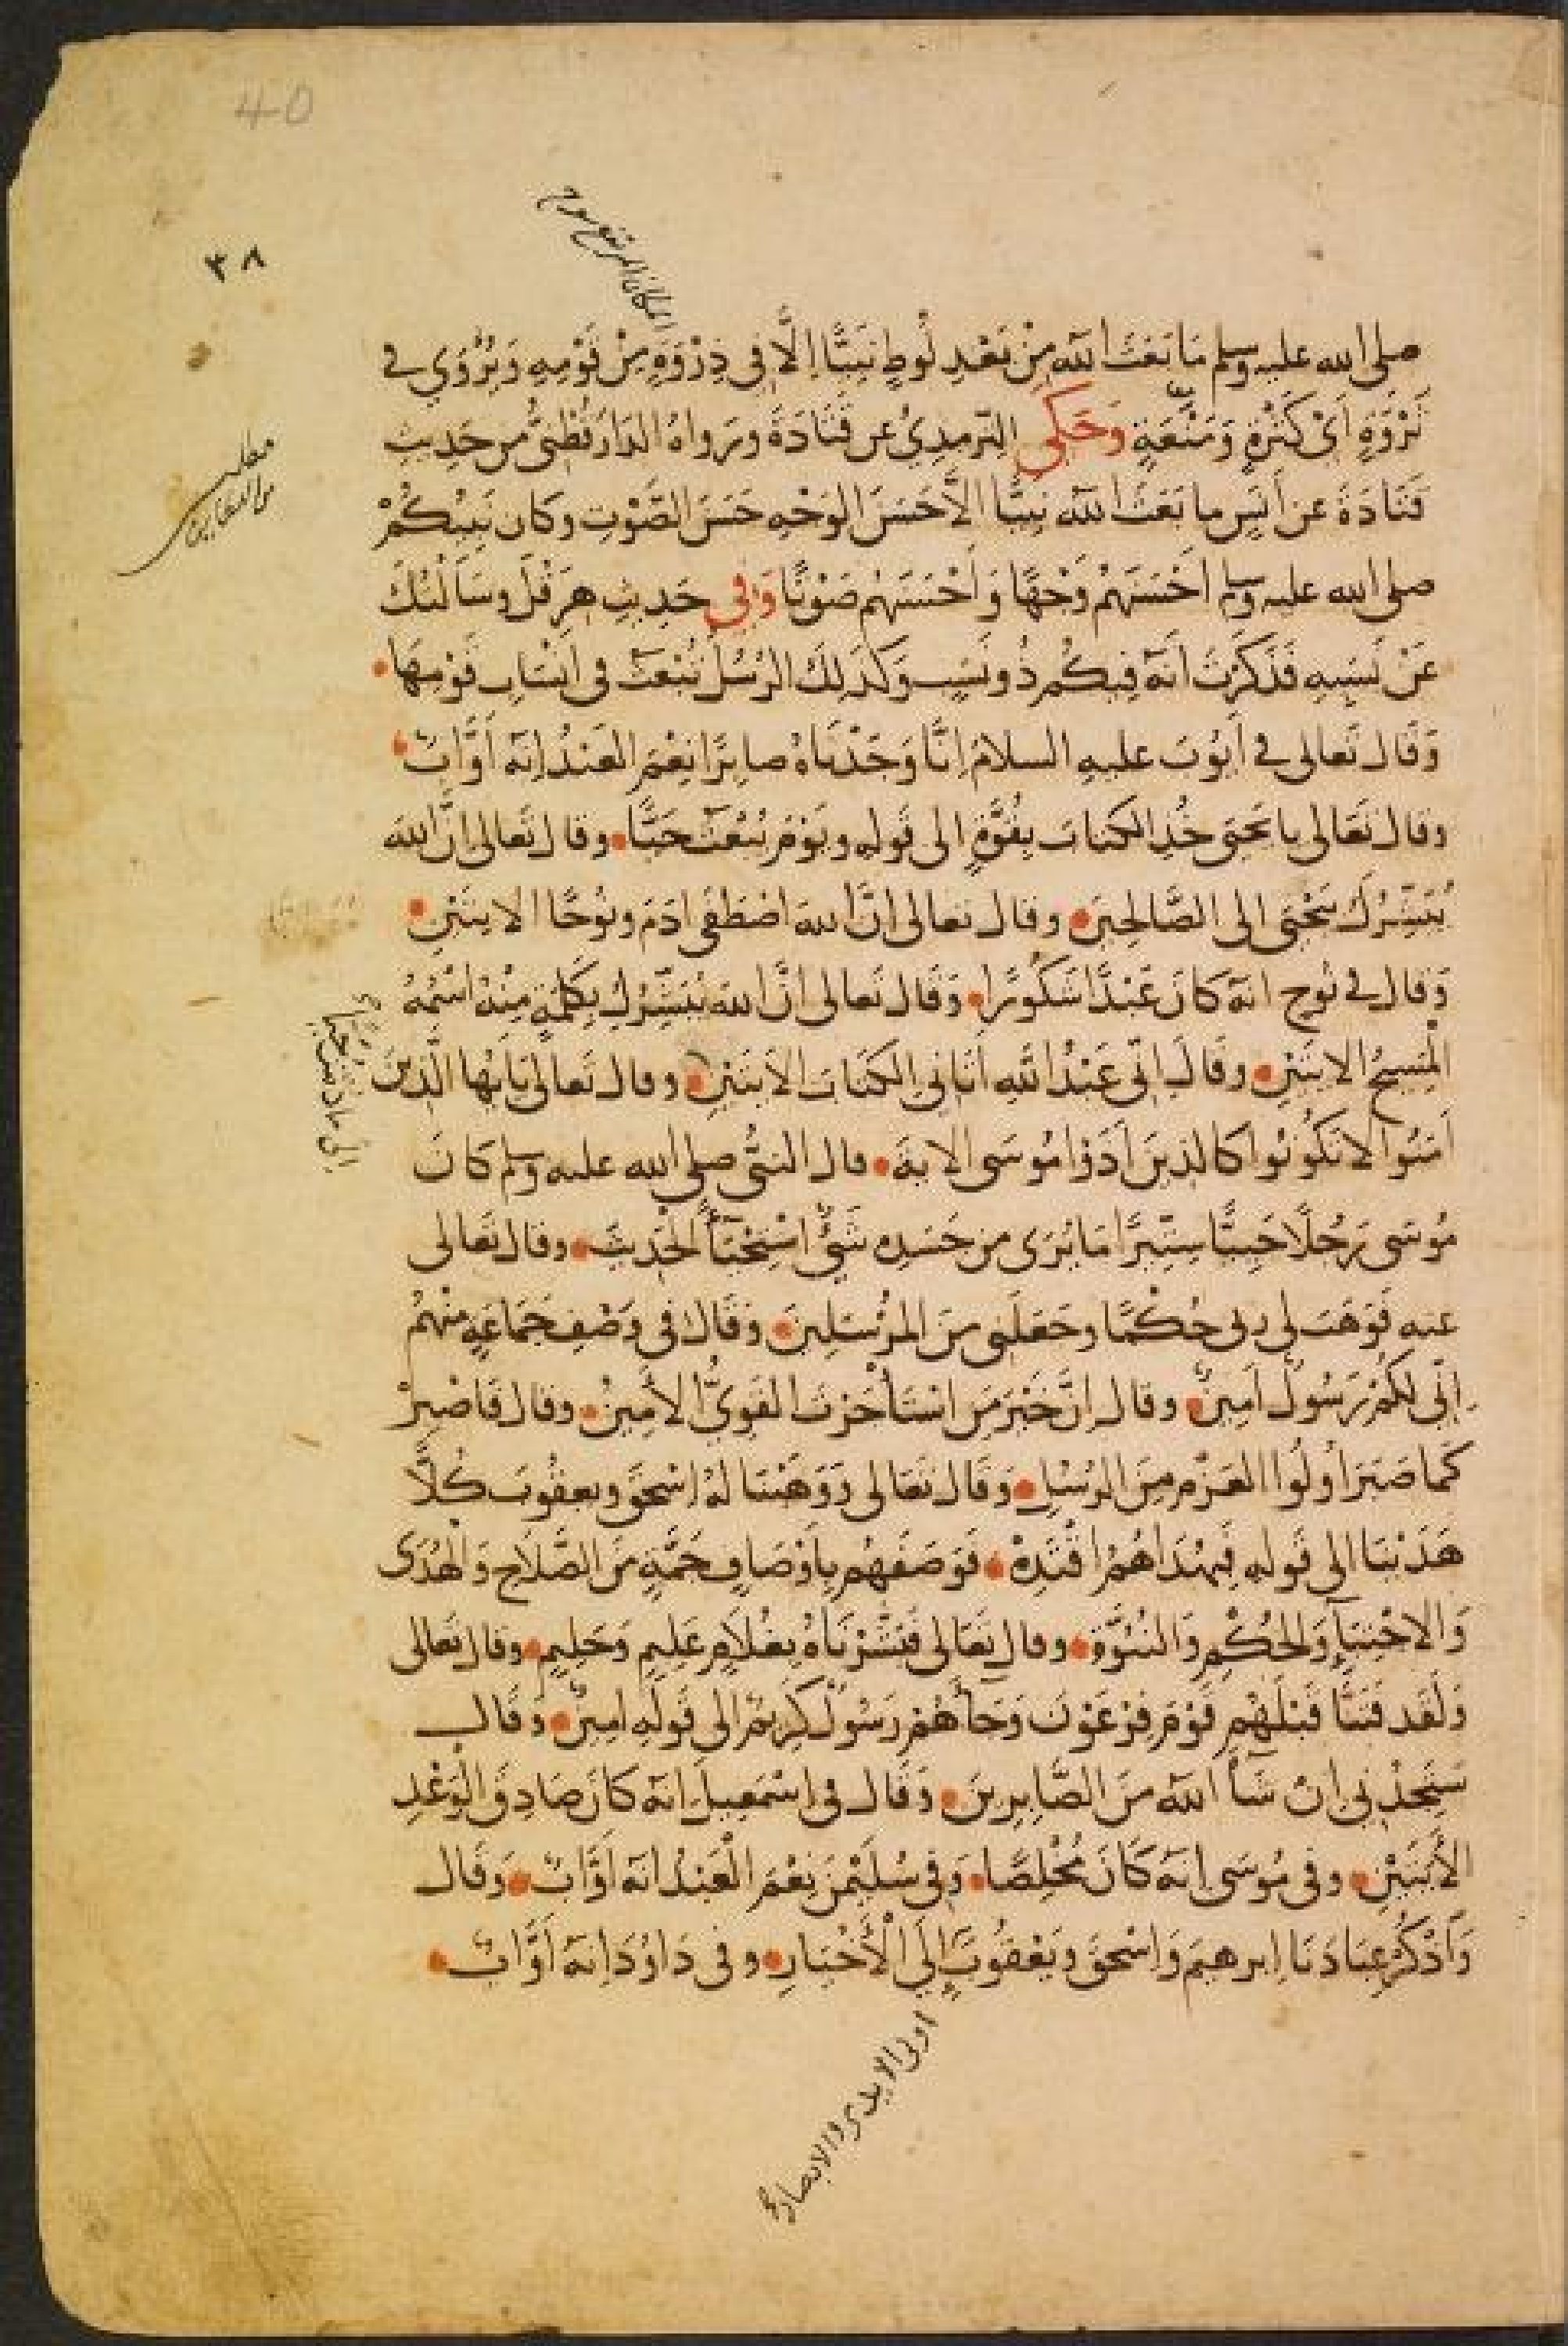 40
٣٨
صلى الله عليه وسلم مَا بَعَثَ اللهُ مِنْ بَعْدِ لُوطٍ نَبِيًّا اِلَّا فِي ذِرْوَةٍ مِنْ قَوْمِهِ وَيُرْوَي في
ثَرْوَةٍ اَيْ كَثْرَةٍ وَمَنَعَةٍ وَحَكَى التِرْمِذِيُ عن قَتَادَةَ ورَواهُ الدَارَقُطْنِيُّ من حَدِيثِ
قَتَادَةَ عن اَنَسٍ ما بَعَثَ اللهُ نَبِيًّا اِلَّا حَسَنَ الوَجْهِ حَسَنَ الصَّوْتِ وكان نَبِيُكُمْ
صلى الله عليه وسلم اَحْسَنَهُمْ وَجْهًا وَاَحْسَنَهُم صَوْتًا وَفِي حَدِيثِ هِرَقْلَ وسَاَلْتُكَ
عَنْ نَسَبِهِ فَذَكَرْتَ اَنَّهُ فِيكُم ذُو نَسَبٍ وَكَذَلِكَ الرُسُلُ تُبْعَثُ في اَنْسَابِ قَوْمِهَا
وَقَال تَعالى في اَيُوبَ عليهِ السلامُ اِنَّا وَجَدْنَاهُ صابِرًا نِعْمَ العَبْدُ اِنَّهُ اَوَّابٌ
وقال تَعَالى يا يَحْيَى خُذِ الكتابَ بِقُوَّةٍ الى قَوله ويَوْمَ يُبْعَثُ حَيًّا وقال تَعالى اِنَّ اللهَ
يُبَشِّرُكَ بِيَحْيَى الى الصَّالِحِينَ وقال تعالى اِنَّ اللهَ اصْطَفَى ادَمَ ونُوحًا الايتَيْنِ
وَقال في نُوحٍ انّهُ كَانَ عَبْدًا شَكُورًا وَقَال تَعالى اِنَّ اللهَ يُبَشِّرُكِ بِكَلِمَةٍ مِنْهُ اسْمُهُ
الْمَسِيحُ الايتَيْنِ وقَالَ اِنِّي عَبْدُ اللهِ اَتَانِي الكتَابَ الاَيَتَيْنِ وقال تَعالى يَايُّها الَّذِينَ
اَمَنُوا لاتَكُونُوا كالذِينَ اَذَوْا مُوسَى الايةَ قال النبيُّ صلى الله عليه وسلم كَانَ
مُوسَى رَجُلًا حَيِيًّا سِتِّيرًا مَا يُرَى مِن جَسَدِه شَيْءٌ اسْتِحْيَآءً الْحَدِيثَ وقال تَعَالى
عنه فَوَهَبَ لِي رَبِّي حُكْمًا وجَعَلَنِي مِنَ المُرْسَلِينَ وَقَال في وَصْفِ جَمَاعَةٍ مِنْهُمُ
اِنِّي لَكُمْ رَسُولٌ اَمِينٌ وقال اِنَّ خَيْرَ مَنِ اسْتَأجَرْتَ القَوِيُّ الاَمِينُ وقال فَاصْبِرْ
كَما صَبَرَ اُولُوا العَزْمِ مِنَ الرُسُلِ وَقَال تَعَالى وَوَهَبْنَا لَهُ اِسْحَقَ ويعقُوبَ كُلًّا
هَدَيْنَا الى قَولهِ فَبِهُدَاهُمُ اقْتَدِهْ فَوَصَفَهُم بِاَوْصَافٍ جَمَّةٍ مِنَ الصَّلَاحِ وَالْهُدَى
وَالاجْتِبَآءِ وَالحُكْمِ وَالنبُوَّةِ وقال تَعَالى فَبَشَّرْنَاهُ بِغُلَامٍ عَلِيمٍ وَحَلِيمٍ وقال تعَالى
وَلَقَد فَتَنَّا قَبْلَهُم قَوْمَ فِرْعَوْنَ وَجَآءَهُمْ رَسُولٌ كَرِيْمٌ الى قَولِهِ اَمِينٌ وَقَال
سَتَجِدُنِي اِنْ شَآءَ اللهُ مِنَ الصَّابِرِينَ وَقَال في اسْمَعِيلَ اِنَّهُ كَانَ صَادِقَ الْوَعْدِ
الاَيَتَيْنِ وفي مُوسَى اِنَّهُ كَانَ مُخْلِصًا وَفي سُلَيْمَنَ نِعْمَ الْعَبْدُ اِنَّهُ اَوَّابٌ وَقَال
وَاذْكُرْ عِبَادَنَا اِبرهيمَ وَاِسْحَقَ ويَعْقُوبَ اِلَى الْاَخْيَارِ وفي دَاوُدَ اِنَّهُ اَوَّابٌ
المكان المرتفع
مطلب
الى مادمت حيا
اولى الايدى والابصار